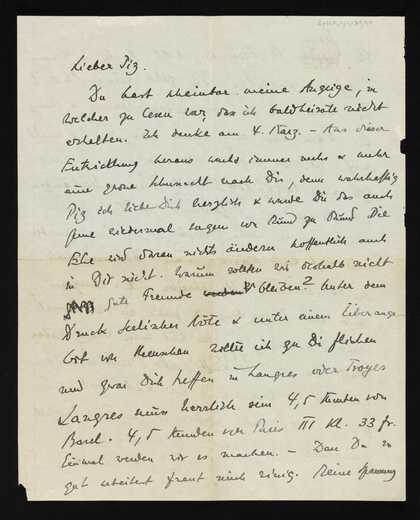 Lieber Piz.
Du hast scheinbar meine Anzeige, in
welcher zu lesen war, das ich bald heirate nicht
erhalten. Ich denke am 4. März. – Aus dieser
Entwicklung heraus wächst immer mehr & mehr
eine grosse Sehnsucht nach Dir, denn wahrhaftig
Piz ich liebe Dich herzlich & würde Dir das auch
gerne wiedermal sagen von Mund zu Mund. Die
Ehe wird daran nichts ändern hoffentlich auch
in Dir nicht. Warum sollten wir deshalb nicht
gute Freunde bleiben? Unter dem
Druck seelischer Nöte & unter einem Überange
bot von Menschen sollte ich zu Dir fliehen
und zwar Dich treffen in Langres oder Troyes
Langres muss herrlich sein 4,5 Stunden von
Basel. 4,5 Stunden von Paris III Kl. 33 fr.
Einmal werden wir es machen. – Das Du so
gut arbeitest freut mich riesig. Meine Spannung